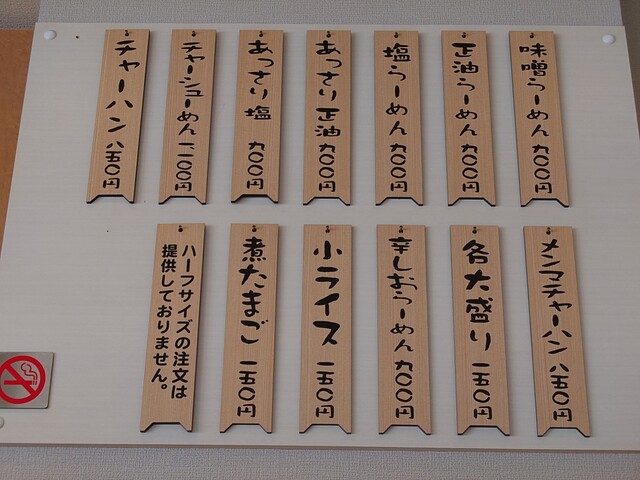 味噌らーめん 九〇〇円
正油らーめん 九〇〇円
塩らーめん 九〇〇円
あっさり正油 九〇〇円
あっさり塩 九〇〇円
チャーシューめん 一、一〇〇円
チャーハン 八五〇円
メンマチャーハン 八五〇円
各大盛り 一五〇円
辛しおらーめん 九〇〇円
小ライス 一五〇円
煮たまご 一五〇円
ハーフサイズの注文は
提供しておりません。